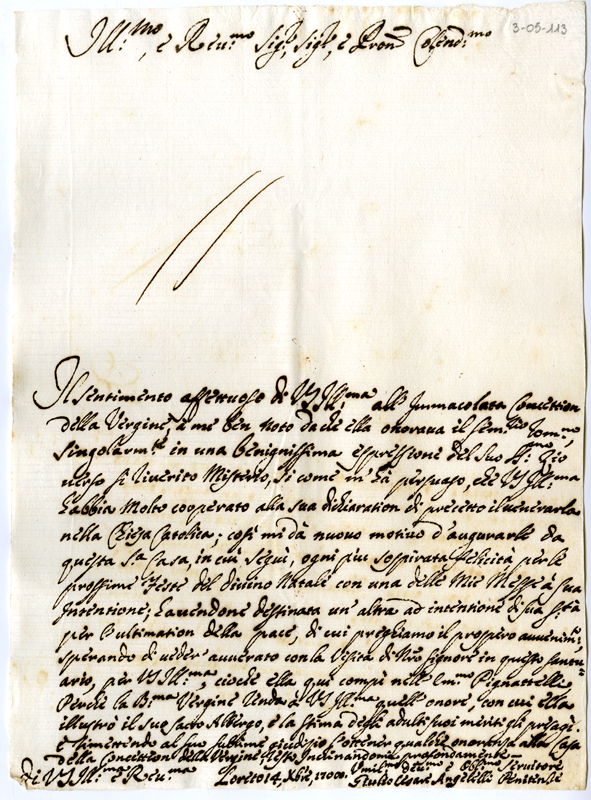 3-05-113
Ill.mo, e Reu.mo Sig.r, Sig.r, e Pron Colend.mo
Il sentimento affettuoso di VS Ill.ma all' Immacolata Concettion
della Vergine, è me ben noto da che ella onoraua il
singolarm.te in una benignissima espressione del suo Zio
uerso si riuerito Misterio, si come m'hà persuaso, che VS Ill.ma
habbia molto cooperato alla sua dichiaration di precetto il uenerarla
nella Chiesa Catolica; così mi dà nuouo motiuo d'augurarle da
questa S.a Casa, in cui seguì, ogni piu sospirata felicità per le
prossime Feste del diuino Natale con una delle mie Messe à sua
Intentione; hauendone destinata un' altra ad intentione di sua S.tà
per l'ultimation della pace, di cui preghiamo il prospero auuenim.to
sperando di ueder auuerato con la Visita di Nro Signore in questo santu
ario, per VS Ill.ma, cioche ella qui compì nell' Em.mo Pignattelli
Perche la B.ma Vergine renda à VS Ill.ma quell' onore, con cui ella
illustrò il suo sacro Albergo, e la stima degli adulti suoi meriti gli presagi.
e rimettendo al suo sublime giudizio l'ottener qualche onoranza alla Casa
della Concettion della Vergine resto Inclinandomi profondamente
di VS Ill.ma e Reu.ma Loreto 14, Xbre, Vmil.mo deu.mo e Obl.mo Seruitore
Giulio Cesare Angelelli Penitenz.e